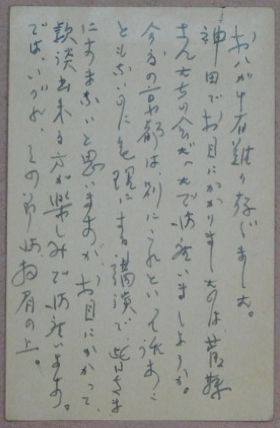 おハガキ有難く存じました。
神田でお目にかかりましたのは、
さんたちの会だったで御座いましょうか。
今度の京都は、別にこれといって話あこ
ともないのに無理にする講演で、
にすまないと思いますが、お目にかかって、
歓談出来る方が楽しみで御座います。
ではいづれ、その節御拝眉の上。